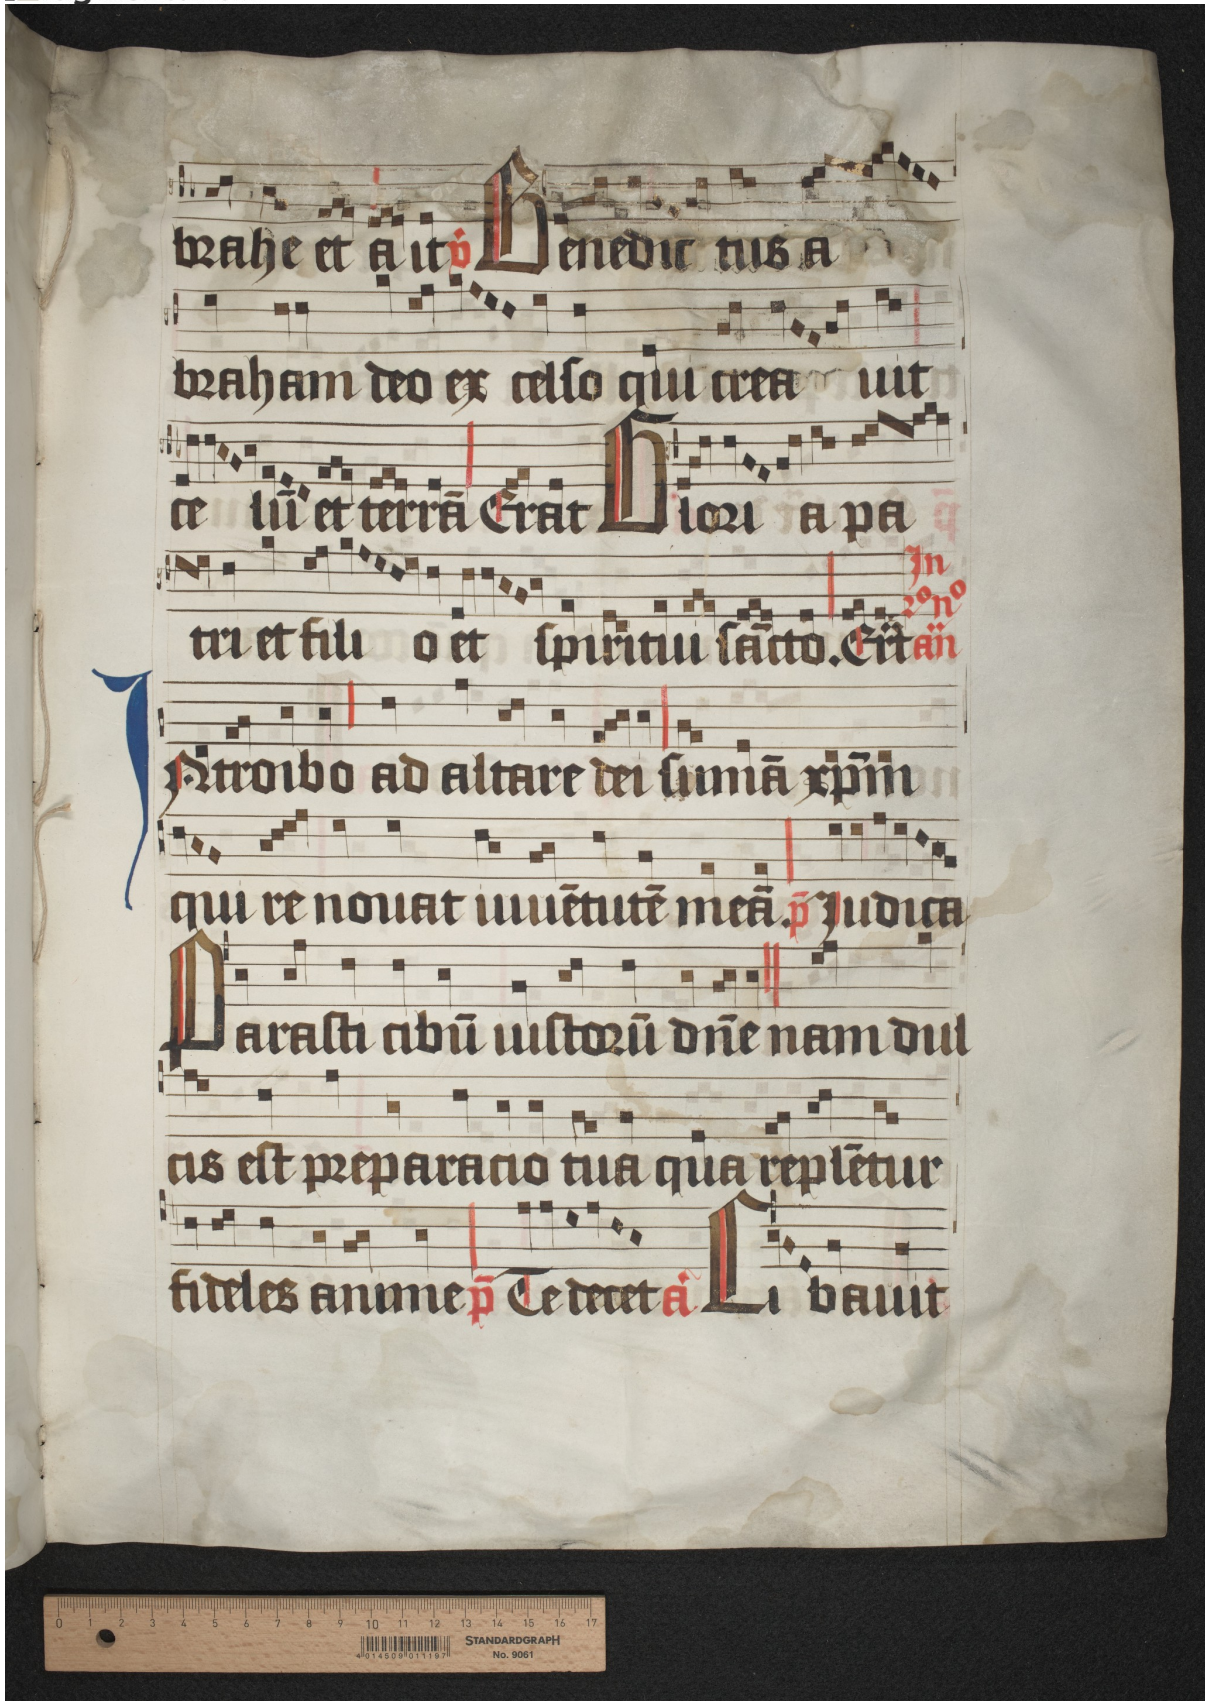 brahe et a it v̄ Benedic tus a
braham deo ex celso qui crea uit
ce lū et terrā Erat Glori a pa
tri et fili o et spiritui sācto. Erāt In 2o no an̄
INtroibo ad altare dei sumā xp̄m
qui re nouat iuuētutē meā. p̄ Iudica
Parasti cibū iustorū dn̄e nam dul
cis est preparacio tua qua replētur
fideles anime p̄ Te decet a Li bauit
0 1 2 3 4 5 6 7 8 9 10 11 12 13 14 15 16 17
4 014509 011197
STANDARDGRAPH
No. 9061